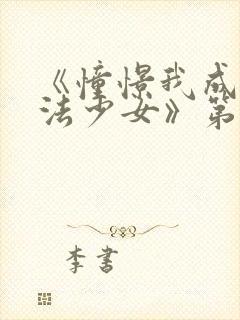 《憧憬我成
法少女》第
李书